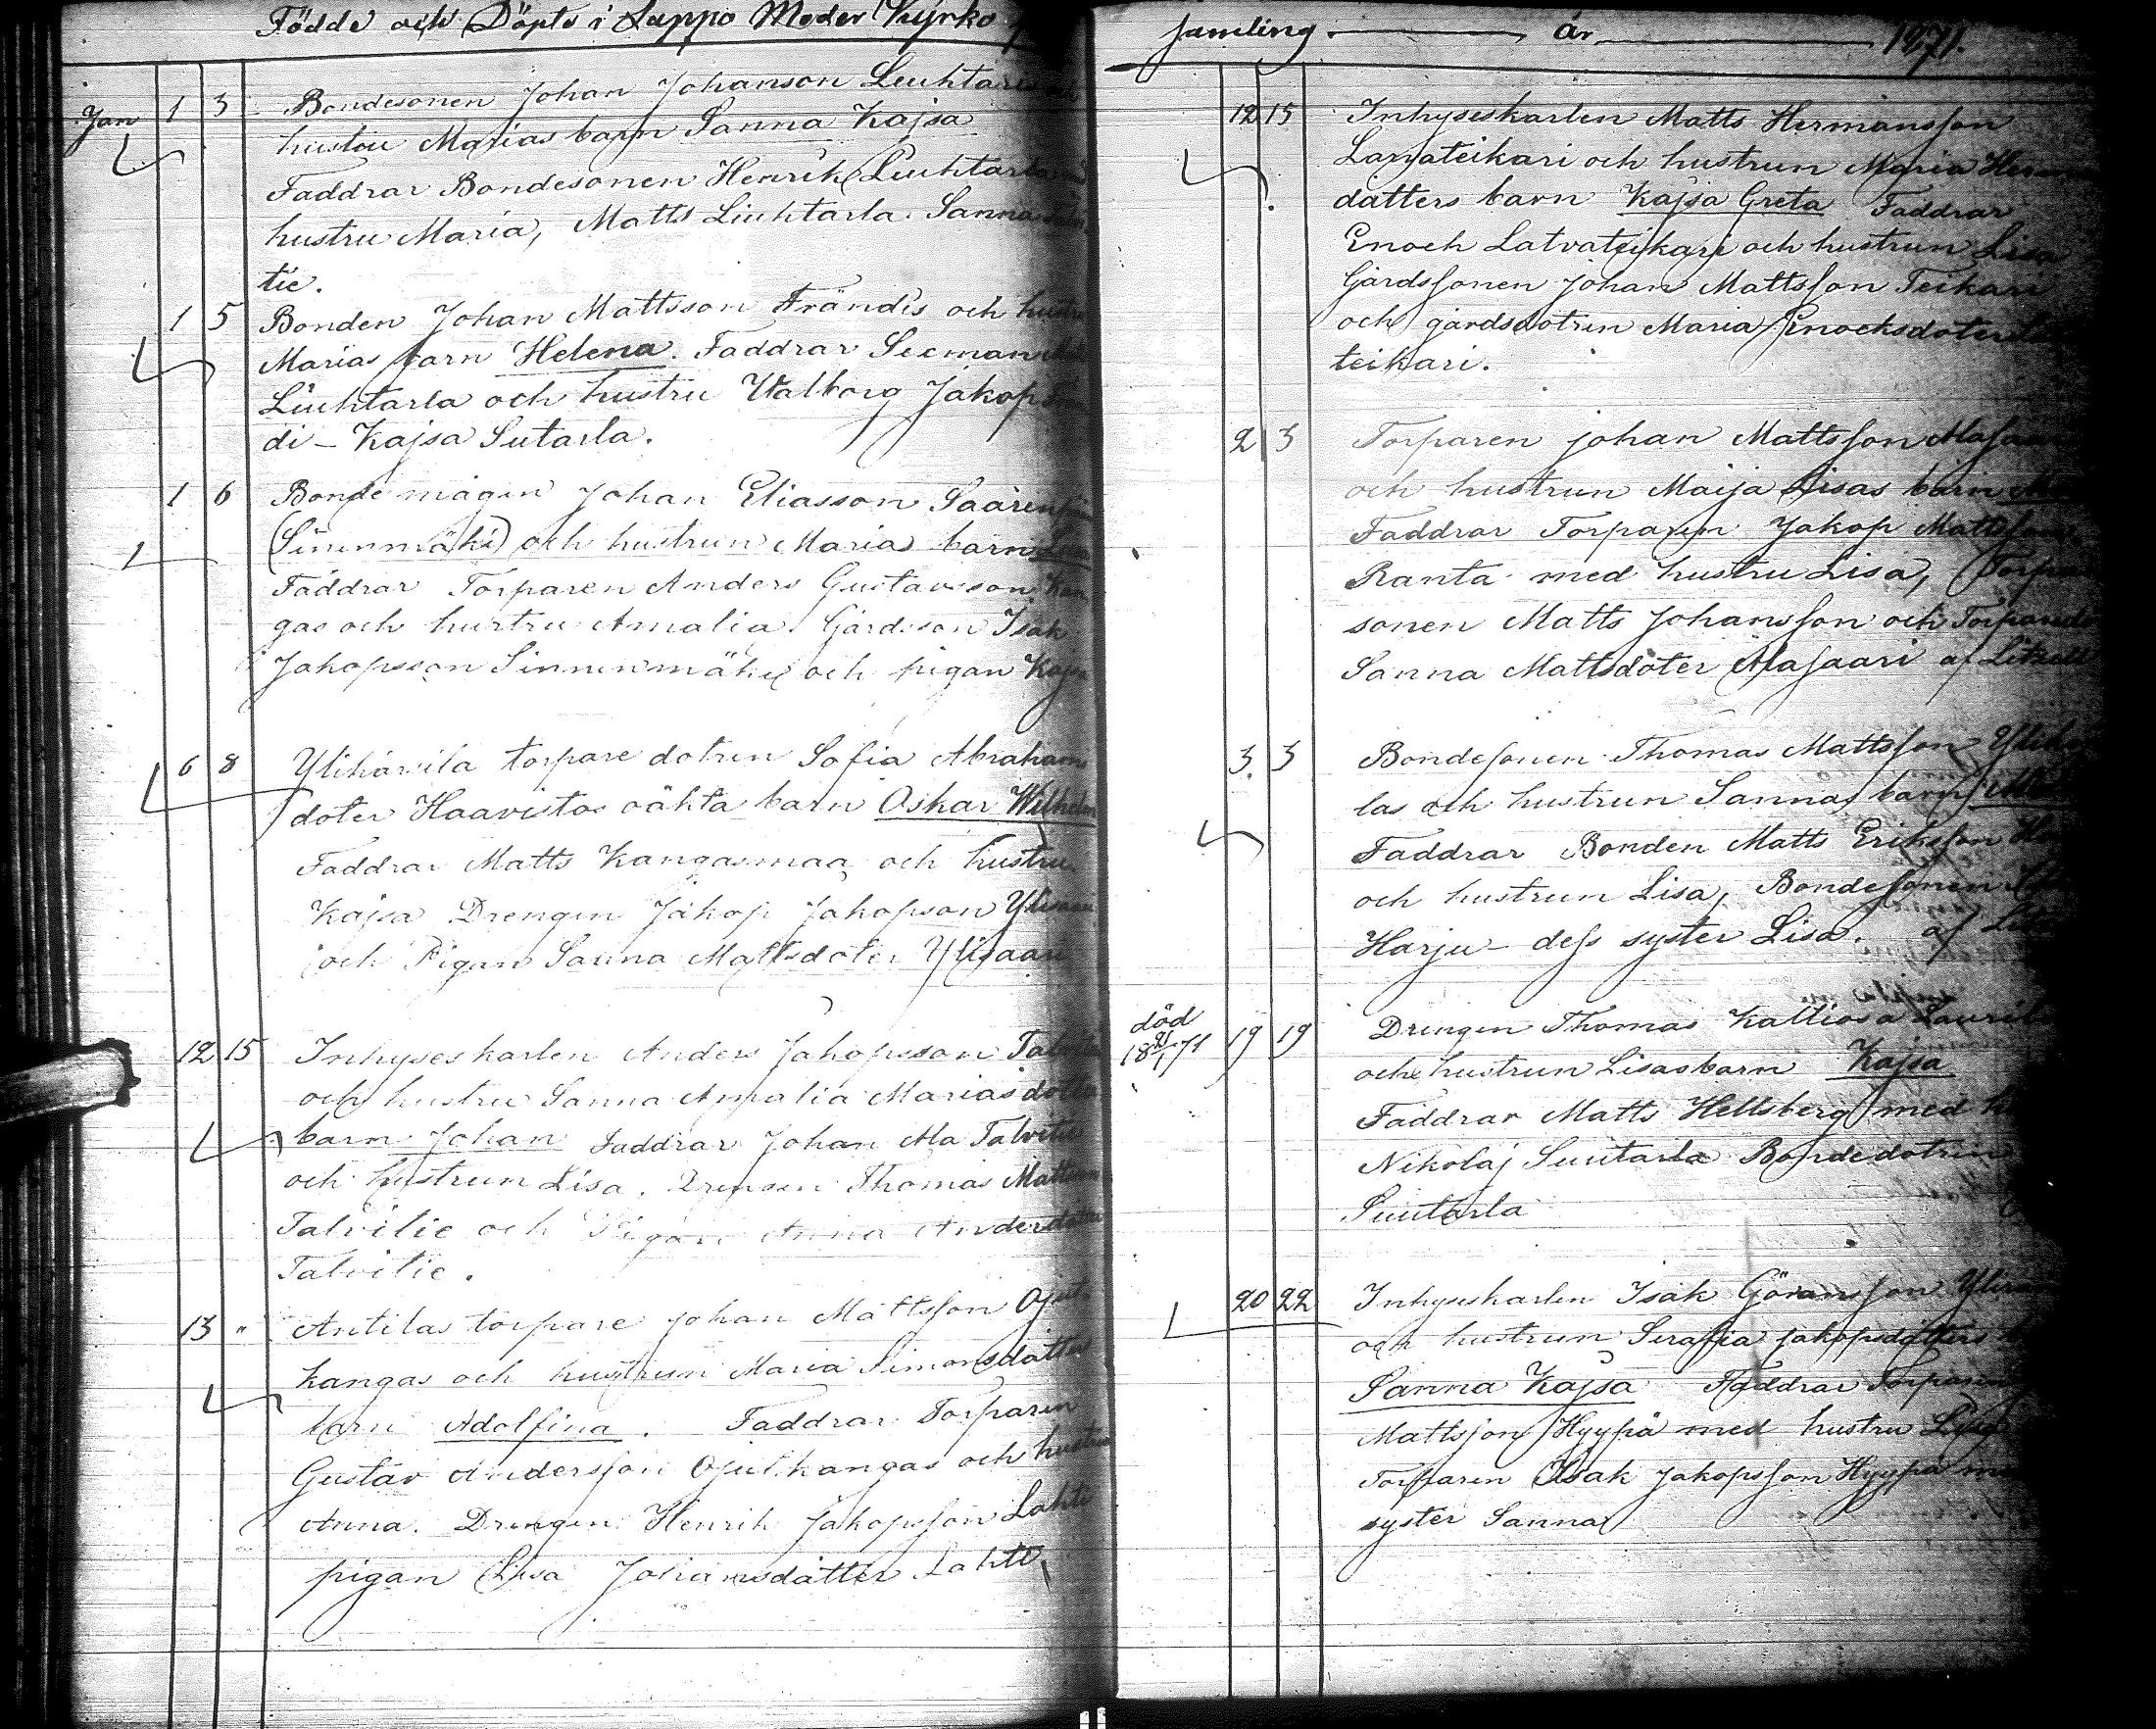 Födde och Döpte i Lappo Moder Kyrko
Jan 1 3 Bondesonen Johan Johanson Liuhtarla
hustru Marias barn Sanna Kajsa
Faddrar Bondesonen Henrik Liuhtarla
hustru Maria, Matts Liuhtarla. Sanna
tie.
1 5 Bonden Johan Mattsson Frändis och hustru
Marias barn Helena. Faddrar Seeman
Liuhtarla och hustru Walborg Jakop
di - Kajsa Sutarla.
1 6 Bonde mågen Johan Eliasson Saarenpää
(Sinenmäki) och hustrun Marias barn
Faddrar Torparen Anders Gustavsson Kan
gas och hustru Amalia. Gårdsson Isak
Jakopsson Sinnenmäki och pigan Kajsa
6 8 Ylihärsilä torpare dotren Sofia Abrahams
doter Haavistos oäkta barn Oskar Wilhelm
Faddrar Matts Kangasmaa och hustru
Kajsa Drengen Jakop Jakopson Ylisaari
och Pigan Sanna Mattsdoter Ylisaari
12 15 Inhyseskarlen Anders Jakopsson
och hustru Sanna Amalia Mariasdotters
barn Johan Faddrar Johan Ala Talvitie
och hustrun Lisa. Drengen Thomas Mattsson
Talvitie och Pigan Anna Andersdotter
Talvitie.
13 " Antilas torpare Johan Mattsson Ojut
kangas och hustrun Maria Simonsdatters
barn Adolfina. Faddrar Torparen
Gustav Andersson Ojutkangas och hustru
Anna. Drengen Henrik Jakopsson Lahti
pigan Lisa Johansdatter Lahti
samling. År 1871.
12 15 Inhyseskarlen Matts Hermansson
Lavateikari och hustrun Maria
datters barn Kajsa Greta Faddrar
Enoch Latvateikari och hustrun Lisa
Gårdssonen Johan Mattsson Teikari
och gårdsdotren Maria Enocksdoter
teikari.
2 3 Torparen Johan Mattsson Alasaari
och hustrun Maija Lisas barn
Faddrar Torparen Jakop Mattsson
Ranta med hustru Lisa, Torpare
sonen Matts Johansson och Torpardo
Sanna Mattsdoter Alasaari af
3. 3 Bondesonen Thomas Mattsson
las och hustrun Sannas barn
Faddrar Bonden Matts Eriksson
och hustrun Lisa, Bondesonen
Harju - dess syster Lisa. af
död 18 21/1 71 19 19 Drengen Thomas Kallios a Laurila
och hustrun Lisas barn Kajsa
Faddrar Matts Hellsberg med
Nikolaj Suutarla Bondedotren
Suutarla
20 22 Inhyseskarlen Isak Göransson
och hustrun Serafia Jakopsdotters
Sanna Kajsa Faddrar Torparen
Mattsson Hyypä med hustru
Torparen Isak Jakopsson Hyypä
syster Sanna